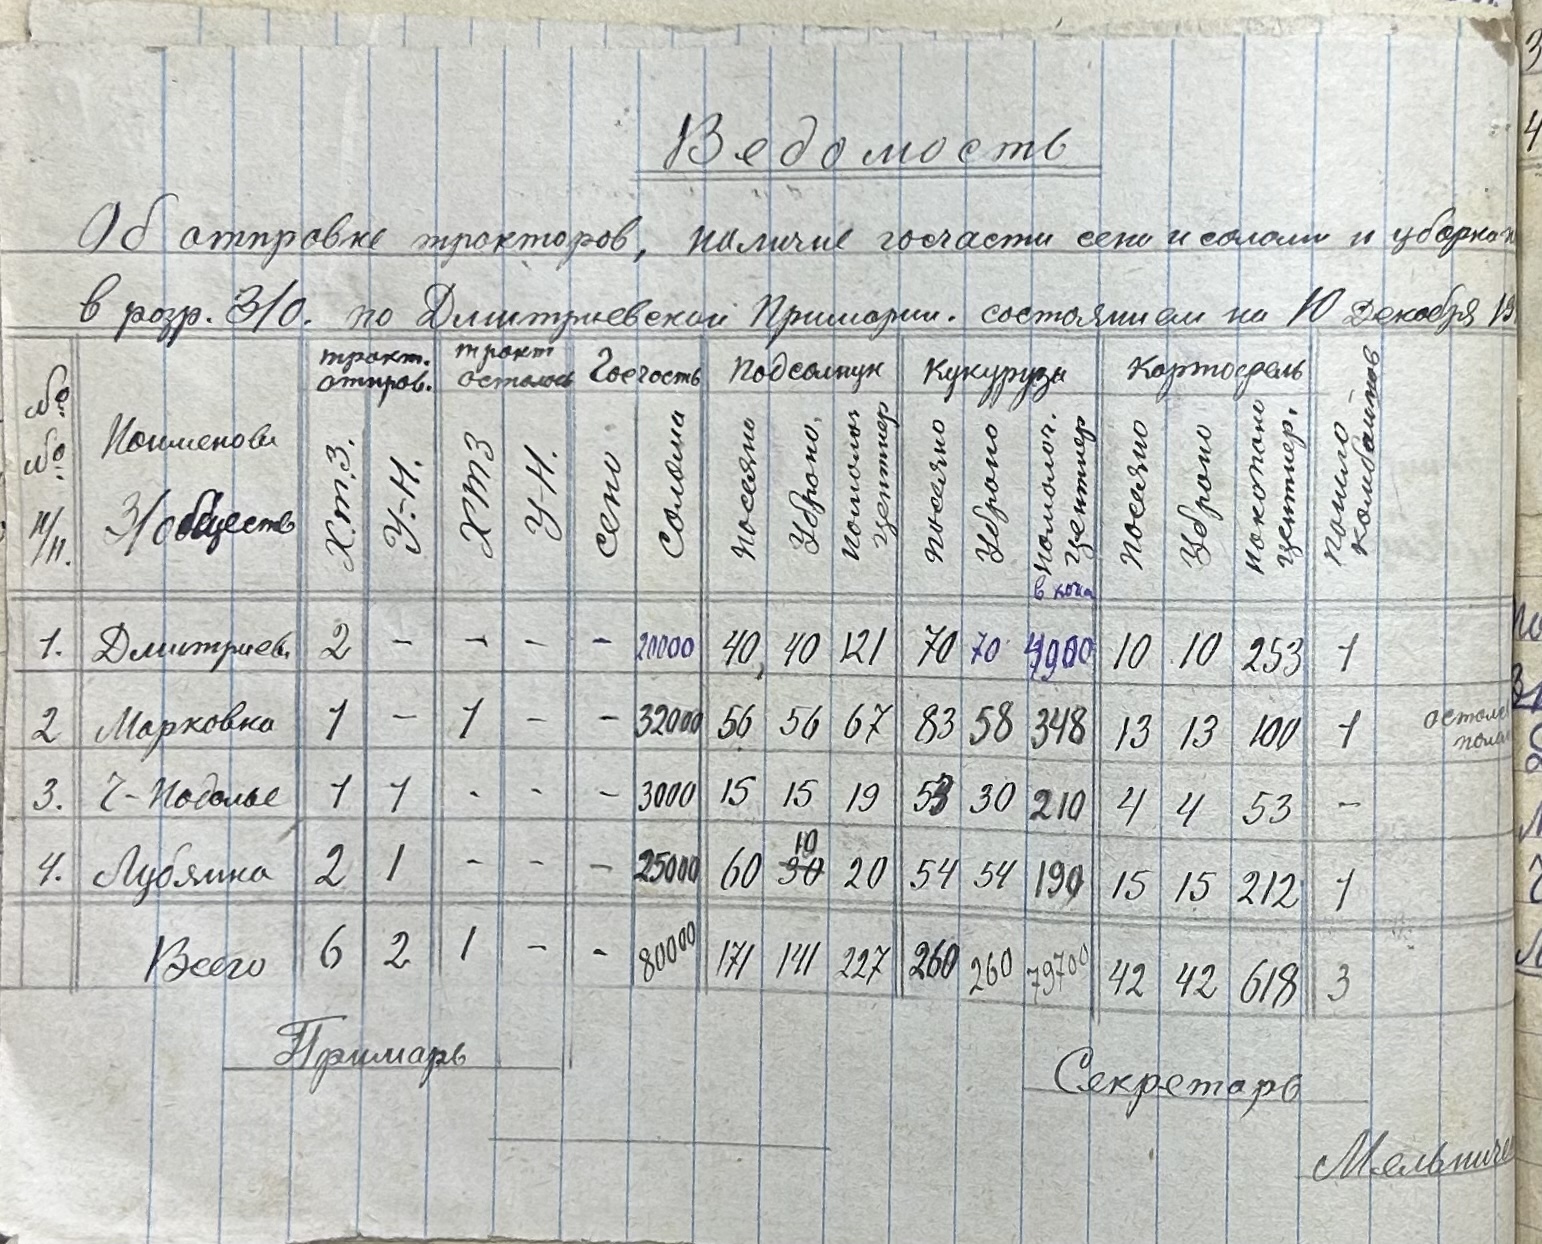 Ведомость
Об отправке тракторов, наличие госчасти сена и соломы и уборка
в разр. З/О. по Дмитриевской Примарии. состоянием на 10 Декабря 19
№ № п/п. Наименов. З/обществ тракт. отправ. тракт осталось Госчасть Подсолнух Кукурузы Картофель Пошло комбайнов
Х.Т.З. У-Н. ХТЗ У-Н. Сено Солома Посеяно Убрано Намолоч центнер Посеяно Убрано Намолоч. центнер в кача Посеяно Убрано Накопано центнер.
1. Дмитриев. 2 - - - - 20000 40 40 121 70 70 4900 10 10 253 1
2 Марковка 1 - 1 - - 32000 56 56 67 83 58 348 13 13 100 1
3. Ч-Подолье 1 1 - - - 3000 15 15 19 53 30 210 4 4 53 -
4. Лубянка 2 1 - - - 25000 60 30 10 20 54 54 190 15 15 212 1
Всего 6 2 1 - - 80000 171 141 227 260 260 79700 42 42 618 3
Примарь
Секретарь
Мельниче